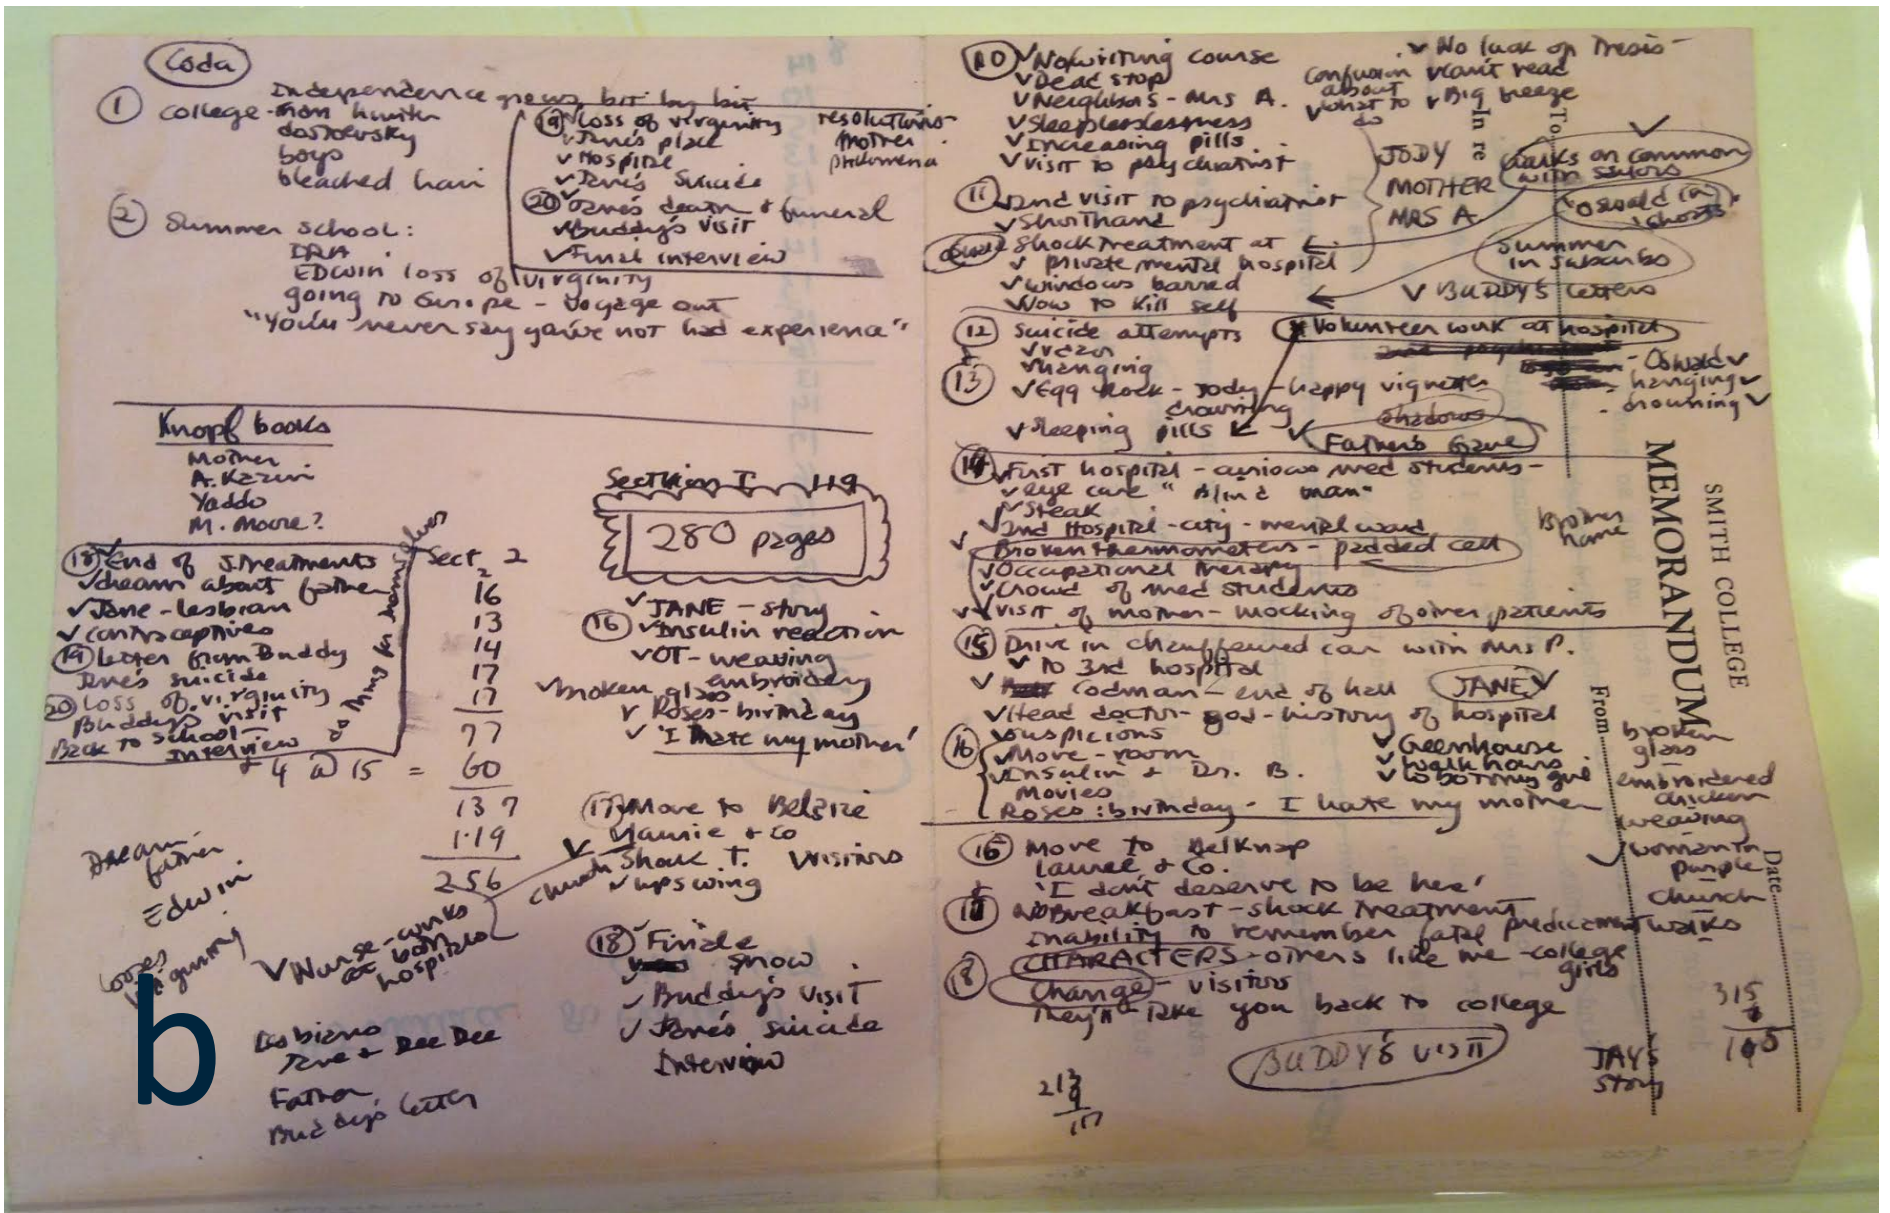 Coda
Independence grows bit by bit
① College - man hunter
dostoevsky
boys
bleached hair
② Summer school:
IRA
EDWIN loss of virginity
going to Europe - Voyage out
"You'll never say you've not had experience"
⑲ ✓ Loss of virginity
✓ Jane's place
✓ Hospital
✓ Jane's Suicide
⑳ ✓ Jane's death + funeral
✓ Buddy's visit
✓ Final interview
resolutions
mother
philomena
Knopf books
Mother
A. Kazin
Yaddo
M. Moore?
⑱ ✓ End of S. treatments
✓ dream about father
✓ Jane - lesbian
✓ contraceptives
⑲ Letter from Buddy
Jane's suicide
⑳ Loss of virginity
Buddy's visit
Back to school -
Interview
do thing for themselves
Sect. 2
16
13
14
17
17
77
+ 4 @ 15 = 60
137
119
256
Section I 119
280 pages
✓ JANE - story
⑯ ✓ Insulin reaction
✓ OT - weaving
embroidery
✓ broken glass
✓ Roses - birthday
✓ 'I hate my mother'
⑰ Move to Belsize
✓ + Co
Shock T. ✓ visitors
✓ upswing
church
⑱ ✓ Finale
snow
✓ Buddy's visit
✓ Jane's suicide
Interview
Dream
father
Edwin
Loses
virginity
✓ Nurse - works
at both
hospitals
Lesbians
Jane + Dee Dee
Father
Buddy's letter
b
⑩ ✓ No writing course
✓ Dead stop
✓ Neighbors - Mrs A.
✓ Sleeplesslessness
✓ Increasing pills
✓ visit to psychiatrist
✓ No luck on Thesis -
Confusion
about
✓ what to
do
✓ can't read
✓ Big breeze
⑪ ✓ 2nd visit to psychiatrist
✓ Shorthand
Shock treatment at
✓ private mental hospital
✓ windows barred
✓ How to kill self
JODY
MOTHER
MRS A
✓
walks on common
with sailors
summer
in suburbs
✓ BUDDY'S letters
⑫ Suicide attempts
✓ razor
✓ hanging
+
⑬ ✓ Egg Rock - Jody - happy vignettes
drowning
✓ Sleeping pills
Volunteer work at hospital
- Oswald ✓
- hanging ✓
- drowning ✓
shadows
✓ Father's Grave
⑭ ✓ First hospital - curious med students -
✓ eye care "Blind man"
✓ Steak
✓ 2nd Hospital - city - mental ward
✓ Broken thermometers - padded cell
✓ Occupational therapy
✓ Crowd of med students
✓ visit of mother - mocking of other patients
Brother
name
⑮ Drive in chauffeured car with Mrs P.
✓ to 3rd hospital
✓ Codman - end of hall JANE ✓
✓ Head doctor - god - history of hospital
⑯ ✓ suspicions
✓ Move - room
✓ Insulin + Dr. B.
Movies
Roses: birthday - I hate my mother
✓ Greenhouse
✓ walk hours
✓ lobotomy girl
⑯ Move to Belknap
Laurel & Co.
'I don't deserve to be here'
+
⑰ No Breakfast - shock treatment
inability to remember fatal predicament
⑱ CHARACTERS - others like me - college
girls
Change - visitors
They'll take you back to college
BUDDY'S VISIT
JAY'S
story
SMITH COLLEGE
MEMORANDUM
To
In re
From
Date
broken
glass
embroidered
chicken
weaving
✓ woman in
purple
church
walks
315
213